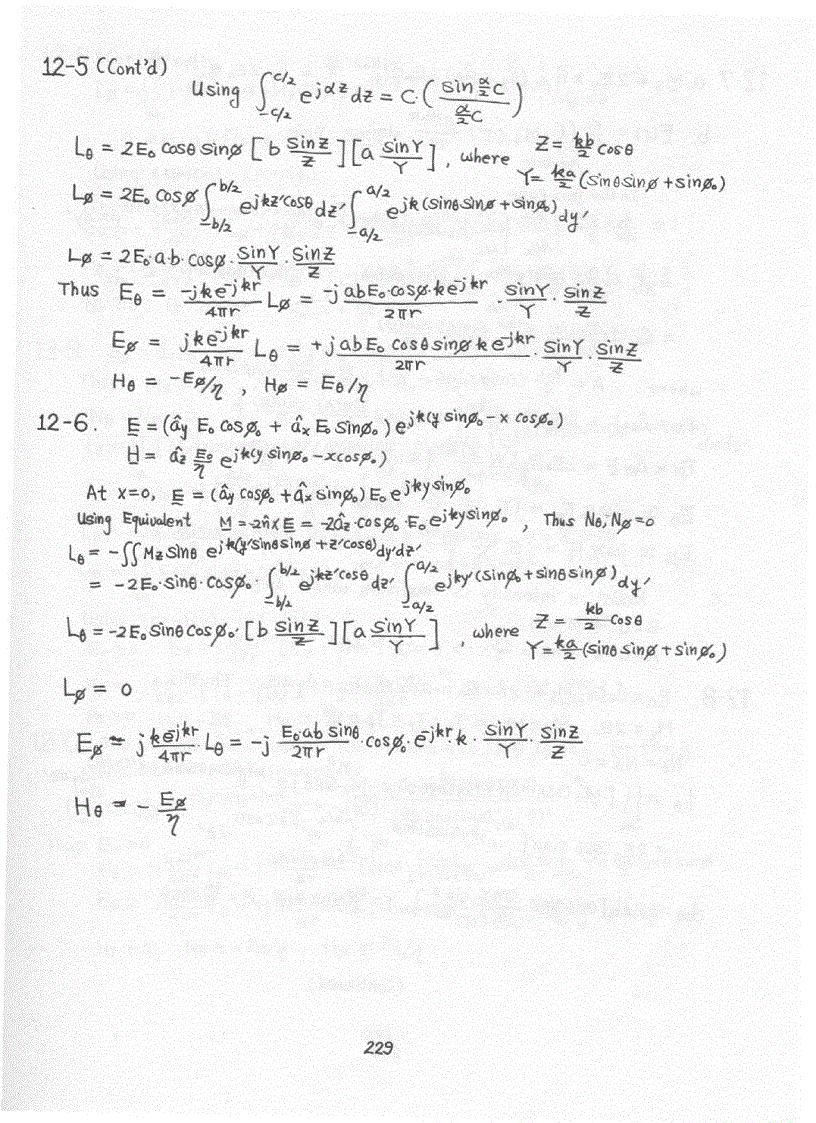 12-5 (Cont'd)
Using ∫_{-c/2}^{c/2} e^{jαz} dz = C·( sin α/2 C / α/2 C )
Lθ = 2E₀ cosθ sinø [ b SinZ/Z ][ a sinY/Y ] , where Z = kb/2 cosθ
Y = ka/2 (sinθ sinø + sinø₀)
Lø = 2E₀ cosø ∫_{-b/2}^{b/2} e^{jkz'cosθ} dz' ∫_{-a/2}^{a/2} e^{jk(sinθ sinø + sinø₀)} dy'
Lø = 2E₀·a·b·cosø · SinY/Y · SinZ/Z
Thus Eθ = -jke^{-jkr}/4πr Lø = -jabE₀·cosø·ke^{-jkr}/2πr · SinY/Y · SinZ/Z
Eø = jke^{-jkr}/4πr Lθ = +jabE₀ cosθ sinø ke^{-jkr}/2πr · SinY/Y · SinZ/Z
Hθ = -Eø/η , Hø = Eθ/η
12-6. E = (ây E₀ cosø₀ + âx E₀ sinø₀) e^{jk(y sinø₀ - x cosø₀)}
H = âz E₀/η e^{jk(y sinø₀ - xcosø₀)}
At x=0, E = (ây cosø₀ + âx sinø₀) E₀ e^{jky sinø₀}
Using Equivalent M = -2n̂ × E = -2âz·cosø₀·E₀ e^{jky sinø₀} , Thus Nθ, Nø = 0
Lθ = -∫∫ Mz sinθ e^{jk(y'sinθ sinø + z'cosθ)} dy'dz'
= -2E₀·sinθ·cosø₀· ∫_{-b/2}^{b/2} e^{jkz'cosθ} dz' ∫_{-a/2}^{a/2} e^{jky'(sinø₀ + sinθ sinø)} dy'
Lθ = -2E₀ sinθ cosø₀· [ b SinZ/Z ][ a SinY/Y ] , where Z = kb/2 cosθ
Y = ka/2 (sinθ sinø + sinø₀)
Lø = 0
Eø = j ke^{-jkr}/4πr · Lθ = -j E₀ab sinθ/2πr · cosø₀ · e^{-jkr} k · SinY/Y · SinZ/Z
Hθ = - Eø/η
229